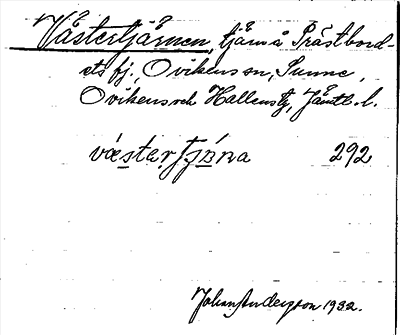 Västertjärnen, tjärn å Prästbord-
ets fj., Ovikens sn, Sunne,
Ovikens och Hallens tg, Jämtl. l.
væstarṭjɛ́na 292
Johan Anderson 1932.